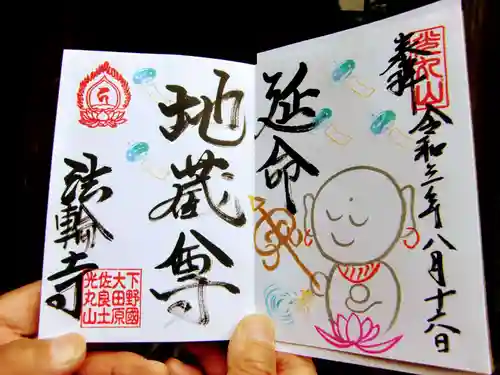 奉拝
光丸山
令和三年八月十六日
延命
地蔵尊
法輪寺
下野國
大田原
佐良土
光丸山